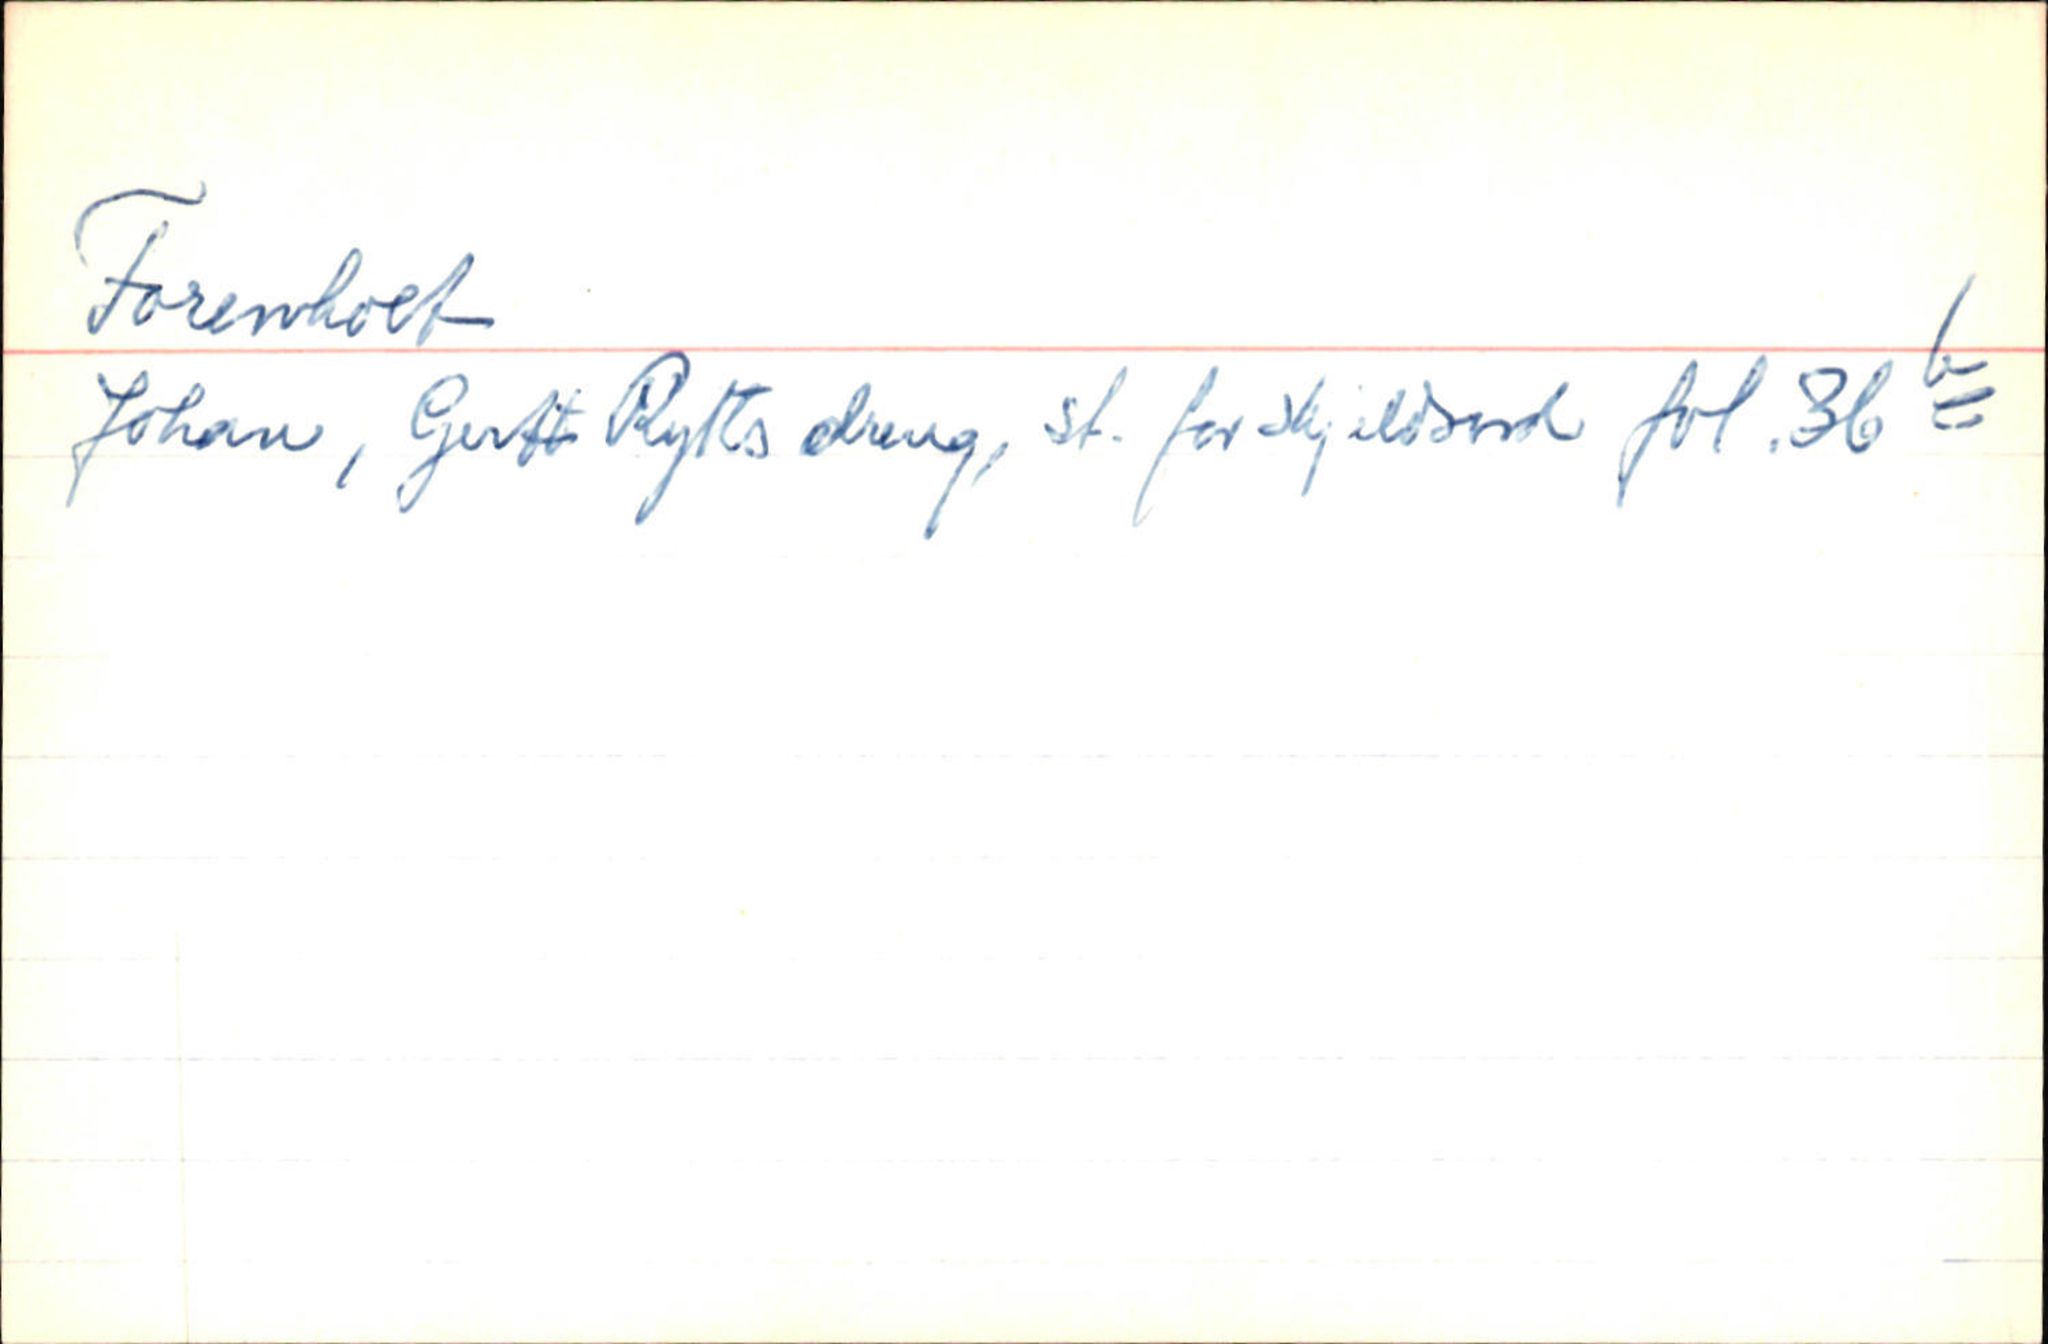 Forenholt
Johan, Gertt Rytts dreng, st. for skjeldsord fol. 36 b